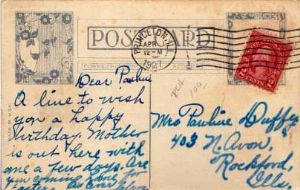 POST CARD
PRINCETON, ILL.
APR
12-M
1927
Dear Pauline
A line to wish
you a happy
birthday. Mother
is out here with
me a few days. Are
you
Mrs Pauline Duffey
403 N. Avon.
Rockford,
Ills